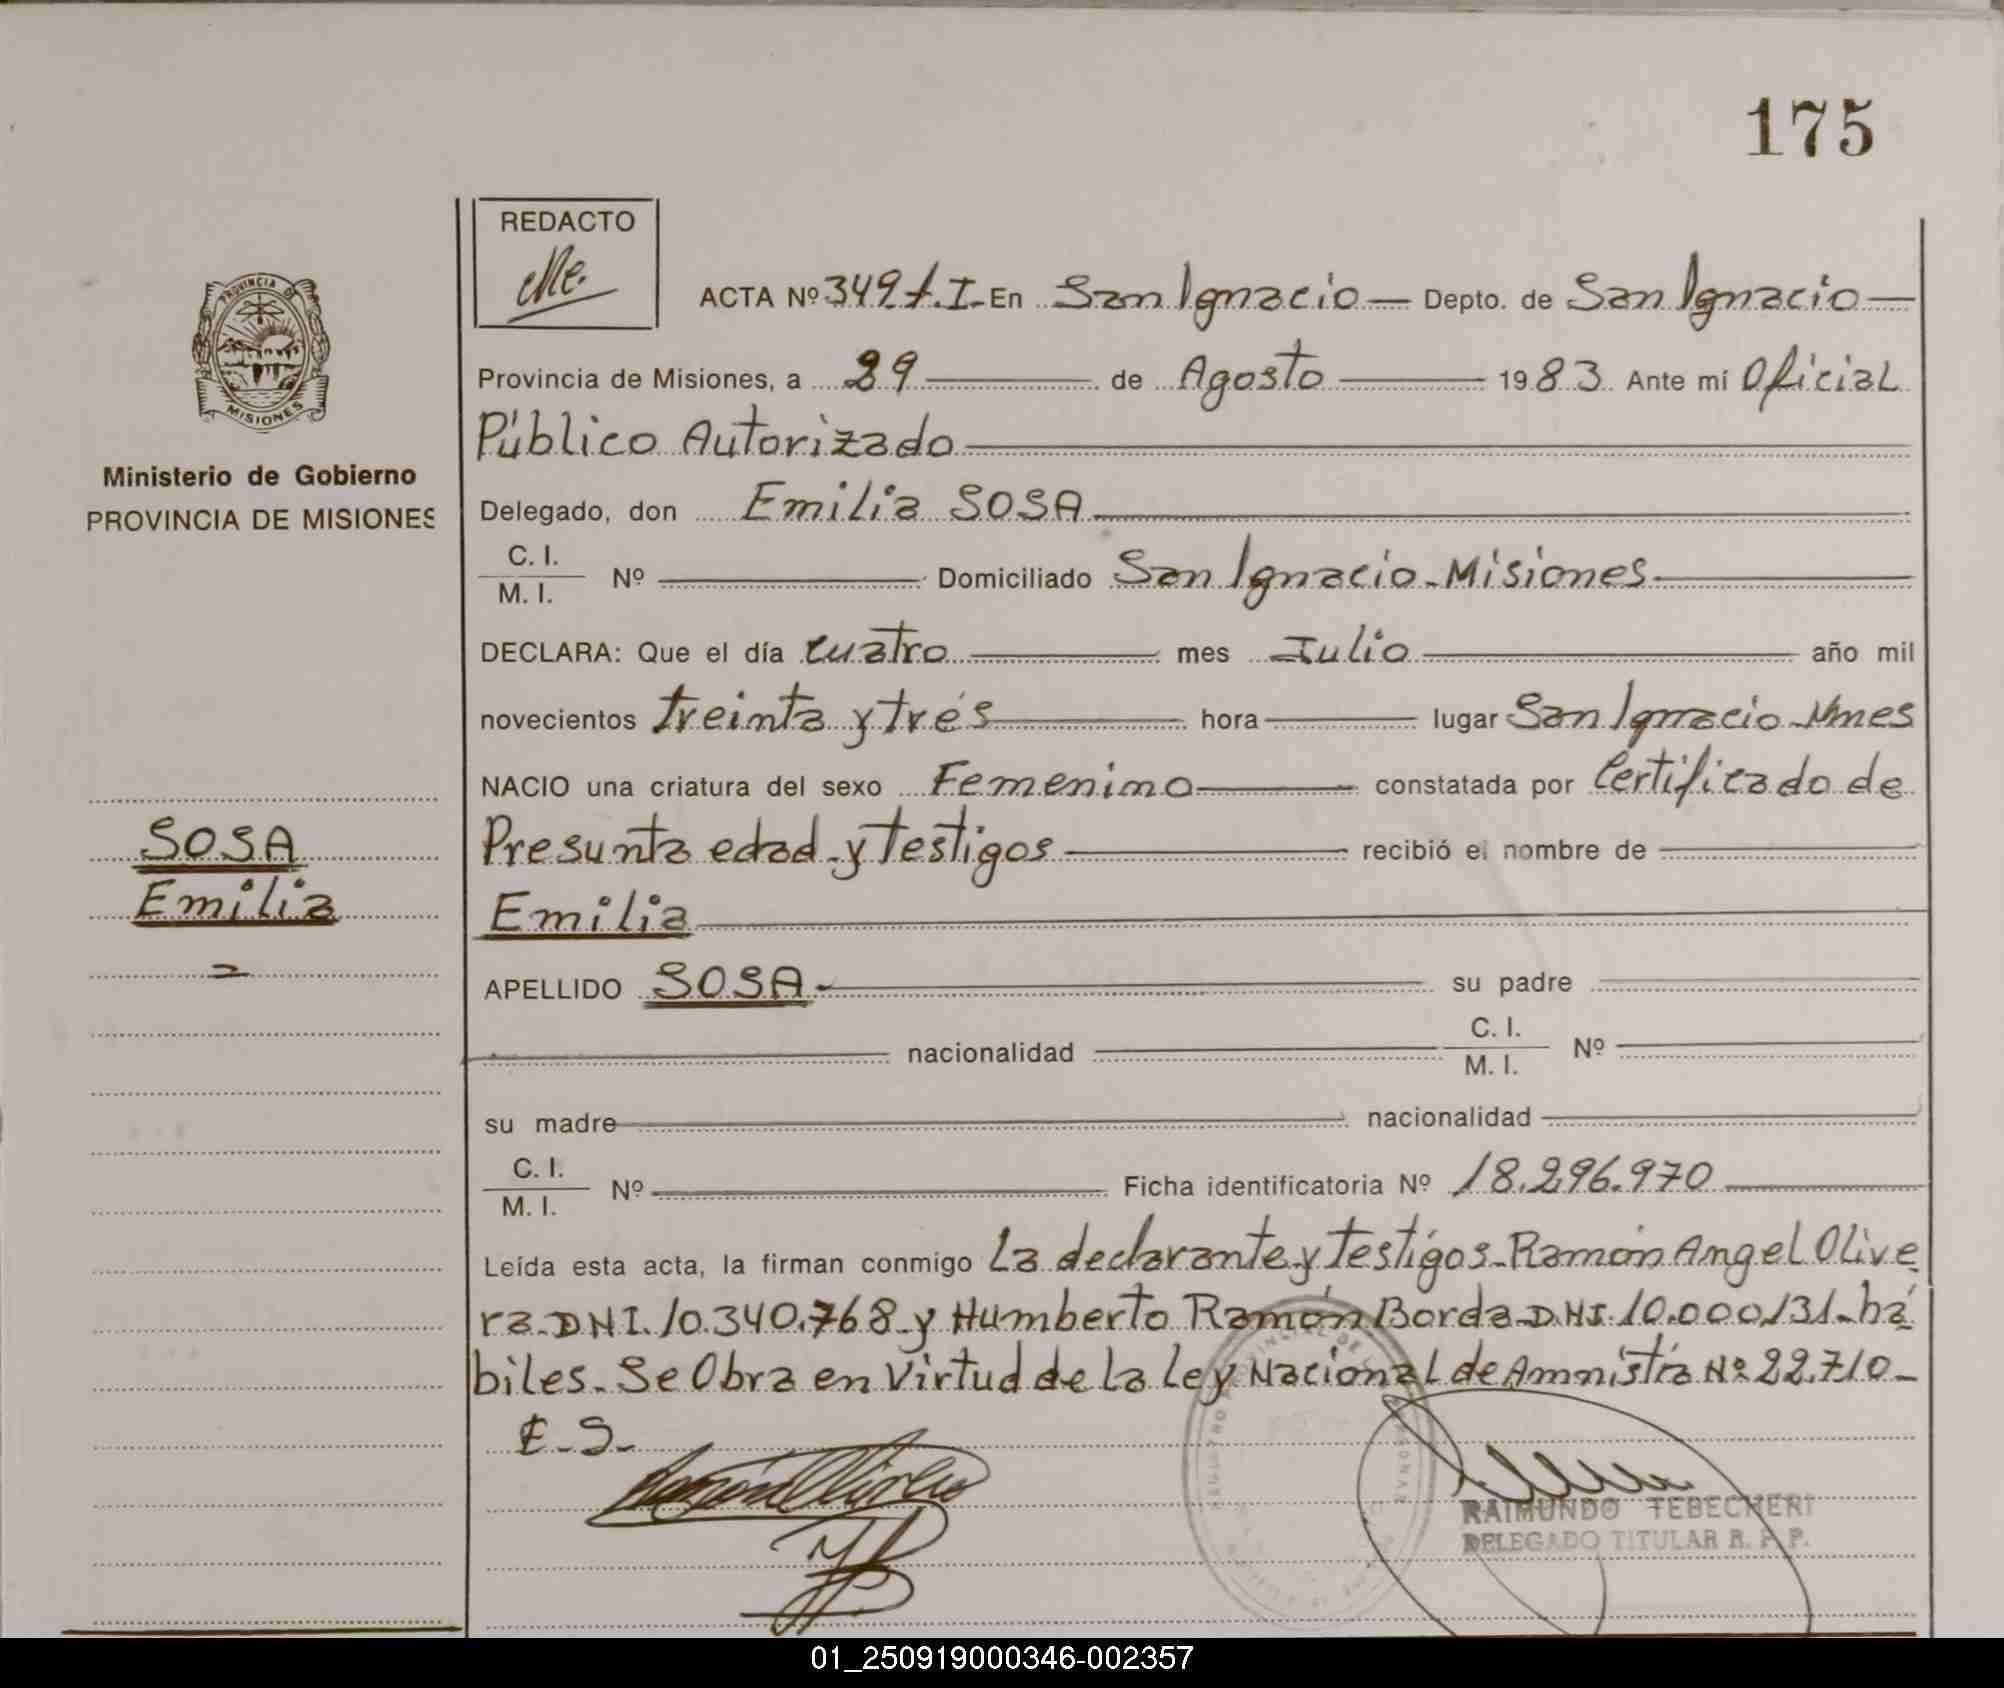 175
REDACTO
PROVINCIA DE
MISIONES
ACTA Nº 349 t. I. En San Ignacio Depto. de San Ignacio
Provincia de Misiones, a 29 de Agosto 1983 Ante mí Oficial
Público Autorizado
Ministerio de Gobierno
PROVINCIA DE MISIONES
Delegado, don Emilia SOSA
C. I.
M. I. Nº Domiciliado San Ignacio - Misiones
DECLARA: Que el día cuatro mes Julio año mil
novecientos treinta y trés hora lugar San Ignacio - Mnes
NACIO una criatura del sexo Femenino constatada por Certificado de
SOSA
Emilia
Presunta edad y testigos recibió el nombre de
Emilia
APELLIDO SOSA su padre
nacionalidad C. I.
M. I. Nº
su madre nacionalidad
C. I.
M. I. Nº Ficha identificatoria Nº 18.296.970
Leída esta acta, la firman conmigo La declarante y testigos - Ramón Angel Olive
ra - DNI. 10.340.768 - y Humberto Ramón Borda - D.NI. 10.000.131 - há
biles - Se Obra en Virtud de la Ley Nacional de Amnistía Nº 22.710 -
E. S.
RAIMUNDO TEBECHERI
DELEGADO TITULAR R. P. P.
01_250919000346-002357